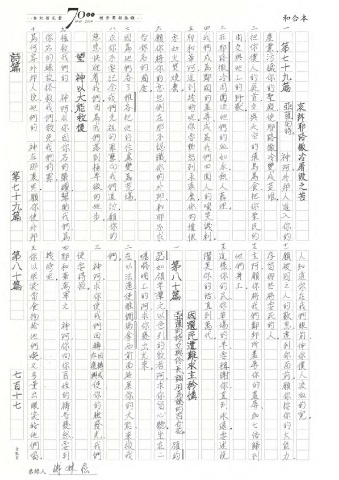 和合本
7000
哀歎耶路撒冷屠毀之苦
第七十九篇 亞薩的詩 一 神阿外邦人進入你的
產業污穢你的聖殿使耶路撒冷變成荒堆
二把你僕人的屍首交與天空的飛鳥為食把你聖民的
肉交與地上的野獸
三在耶路撒冷周圍流他們的血如水無人葬埋
四我們成為鄰國的羞辱成為我們四圍人的嗤笑譏刺
五耶和華阿這到幾時呢你要動怒到永遠麼你的憤恨
要如火焚燒麼
六願你將你的忿怒倒在那不認識你的外邦和那不求
告你名的國度
七因為他們吞了雅各把他的住處變為荒場
八求你不要記念我們先祖的罪孽向我們追討願你的
慈悲快迎著我們因為我們落到極卑微的地步
望 神以大能救復
九拯救我們的 神阿求你因你名的榮耀幫助我們為
你名的緣故搭救我們赦免我們的罪
十為何容外邦人說他們的 神在那裏呢願你使外邦
人知道你在我們眼前伸你僕人流血的冤
十一願被囚之人的歎息達到你面前願你按你的大能力
存留那些將要死的人
十二主阿願你將我們鄰邦所羞辱你的羞辱加七倍歸到
他們身上
十三這樣你的民你草場的羊要稱謝你直到永遠要述說
讚美你的話直到萬代
因選民遭難求主矜憐
第八十篇
二在以法蓮便雅憫瑪拿西面前施展你的大能來救我
三 神阿求你使我們回轉使你的臉發光我們
便要得救
四耶和華萬軍之 神阿你向你百姓的禱告發怒要到
幾時呢
五你以眼淚當食物給他們喫又多量出眼淚給他們喝
詩篇 第七十九篇 第八十篇 七百十七